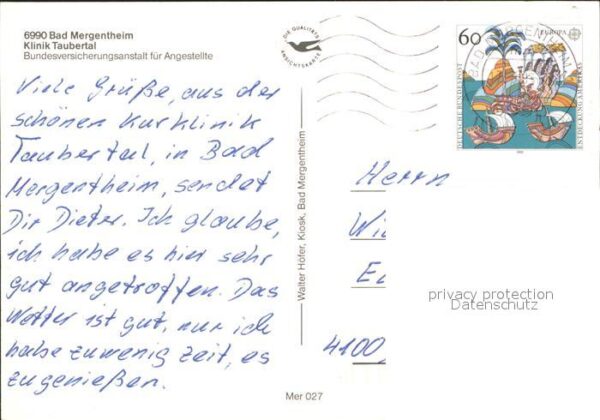 6990 Bad Mergentheim
Klinik Taubertal
Bundesversicherungsanstalt für Angestellte
Viele Grüße, aus der
schönen Kurklinik
Taubertal, in Bad
Mergentheim, sendet
Dir Dieter. Ich glaube,
ich habe es hier sehr
gut angetroffen. Das
Wetter ist gut, nur ich
habe zuwenig Zeit, es
zu genießen.
DIE QUALITÄTS
ANSICHTSKARTE
Walter Höfer, Kiosk, Bad Mergentheim
Mer 027
60
EUROPA
DEUTSCHE BUNDESPOST
ENTDECKUNG AMERIKAS
BAD MERGENTHEIM
Herrn
4100
privacy protection
Datenschutz